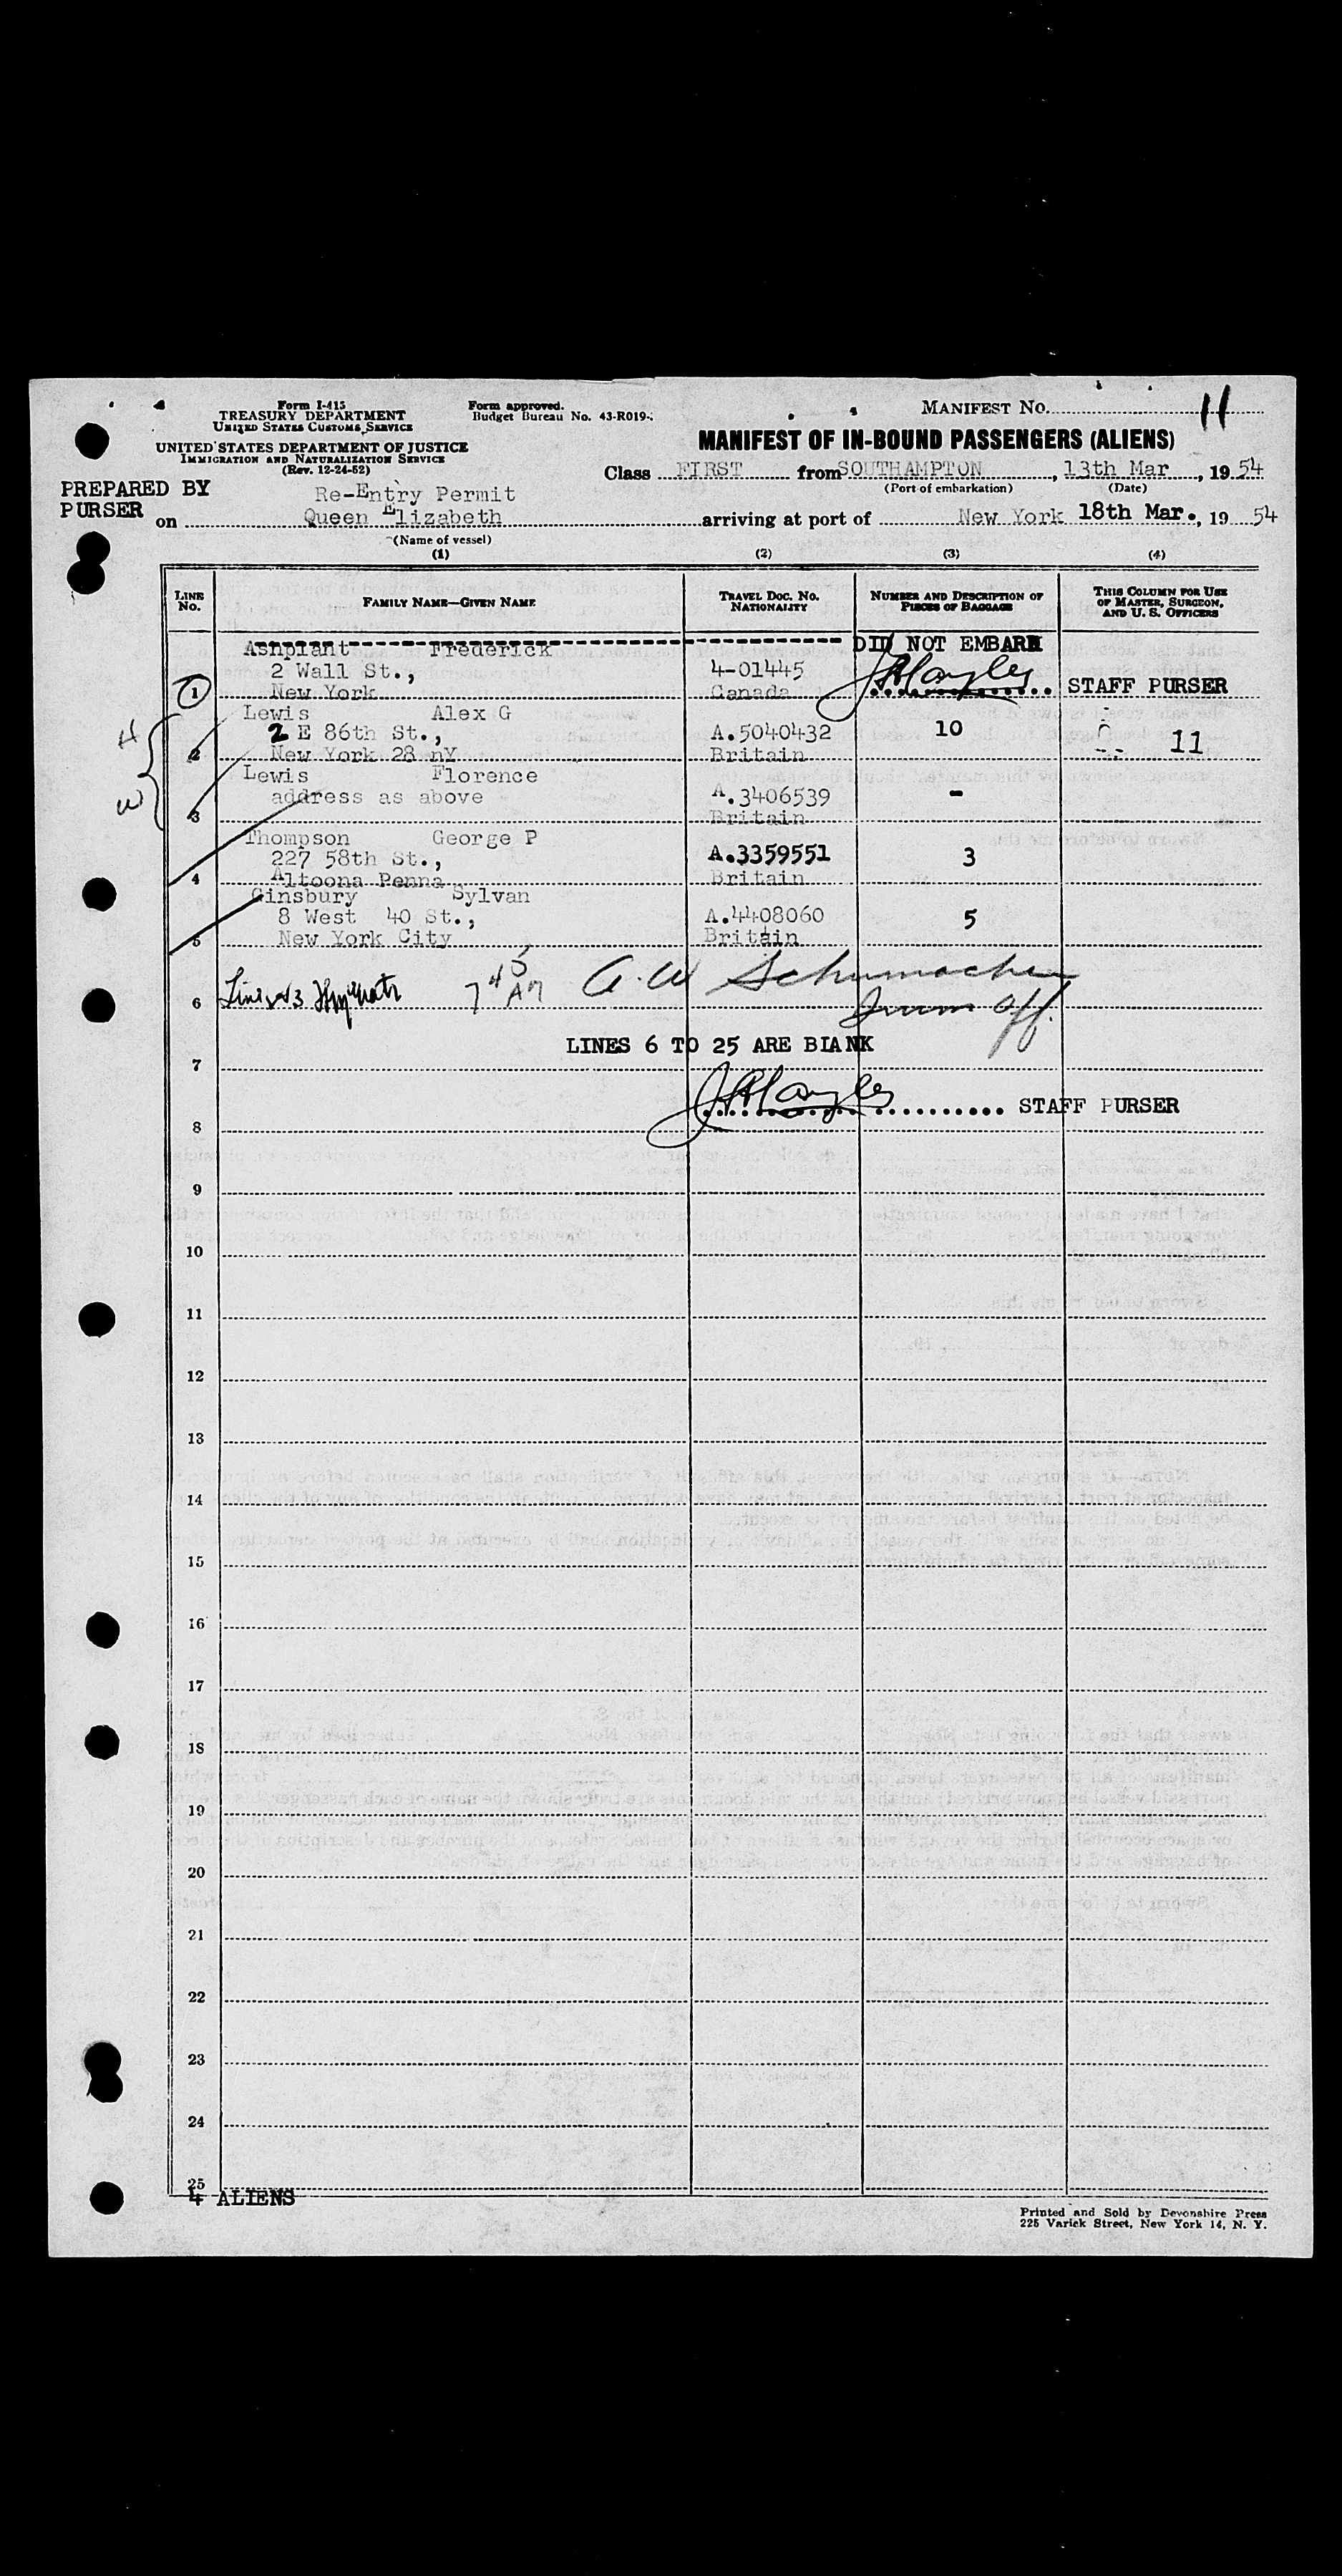 Form I-415
TREASURY DEPARTMENT
UNITED STATES CUSTOMS SERVICE
UNITED STATES DEPARTMENT OF JUSTICE
IMMIGRATION AND NATURALIZATION SERVICE
(Rev. 12-24-52)
Form approved.
Budget Bureau No. 43-R019-
MANIFEST NO. 11
MANIFEST OF IN-BOUND PASSENGERS (ALIENS)
Class FIRST from SOUTHAMPTON, 13th Mar, 19 54
(Port of embarkation) (Date)
PREPARED BY
PURSER
Re-Entry Permit
on Queen Elizabeth arriving at port of New York 18th Mar., 19 54
(Name of vessel)
(1) (2) (3) (4)
LINE NO.
FAMILY NAME—GIVEN NAME
TRAVEL DOC. NO. NATIONALITY
NUMBER AND DESCRIPTION OF PIECES OF BAGGAGE
THIS COLUMN FOR USE OF MASTER, SURGEON, AND U. S. OFFICERS
Ashplant Frederick DID NOT EMBARK
2 Wall St., 4-01445
1 New York Canada STAFF PURSER
Lewis Alex G
H 2 E 86th St., A.5040432 10 11
2 New York 28 nY Britain
Lewis Florence
W address as above A.3406539 -
3 Britain
Thompson George P
227 58th St., A.3359551 3
4 Altoona Penna Britain
Ginsbury Sylvan
8 West 40 St., A.4408060 5
5 New York City Britain
6 7 45 AM A. W Schumacher
Imm Off.
LINES 6 TO 25 ARE BLANK
7
STAFF PURSER
8
9
10
11
12
13
14
15
16
17
18
19
20
21
22
23
24
25
4 ALIENS
Printed and Sold by Devonshire Press
225 Varick Street, New York 14, N. Y.